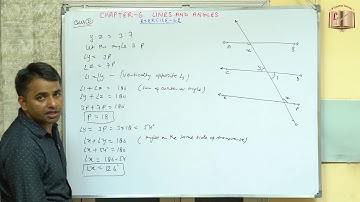 CHAPTER-6 LINES AND ANGLES
EXERCISE-6.2
Ans②
y : z = 3 : 7
Let the angle is P
∠y = 3P
∠z = 7P
∠1 = ∠y — (Vertically opposite ∠s)
∠1 + ∠z = 180 (Sum of cointerior angle)
∠y + ∠z = 180
3P + 7P = 180
P = 18
∠y = 3P = 3×18 = 54°
∠x + ∠y = 180 (Angles on the same side of transversal)
∠x + 54° = 180
∠x = 180 - 54
∠x = 126°